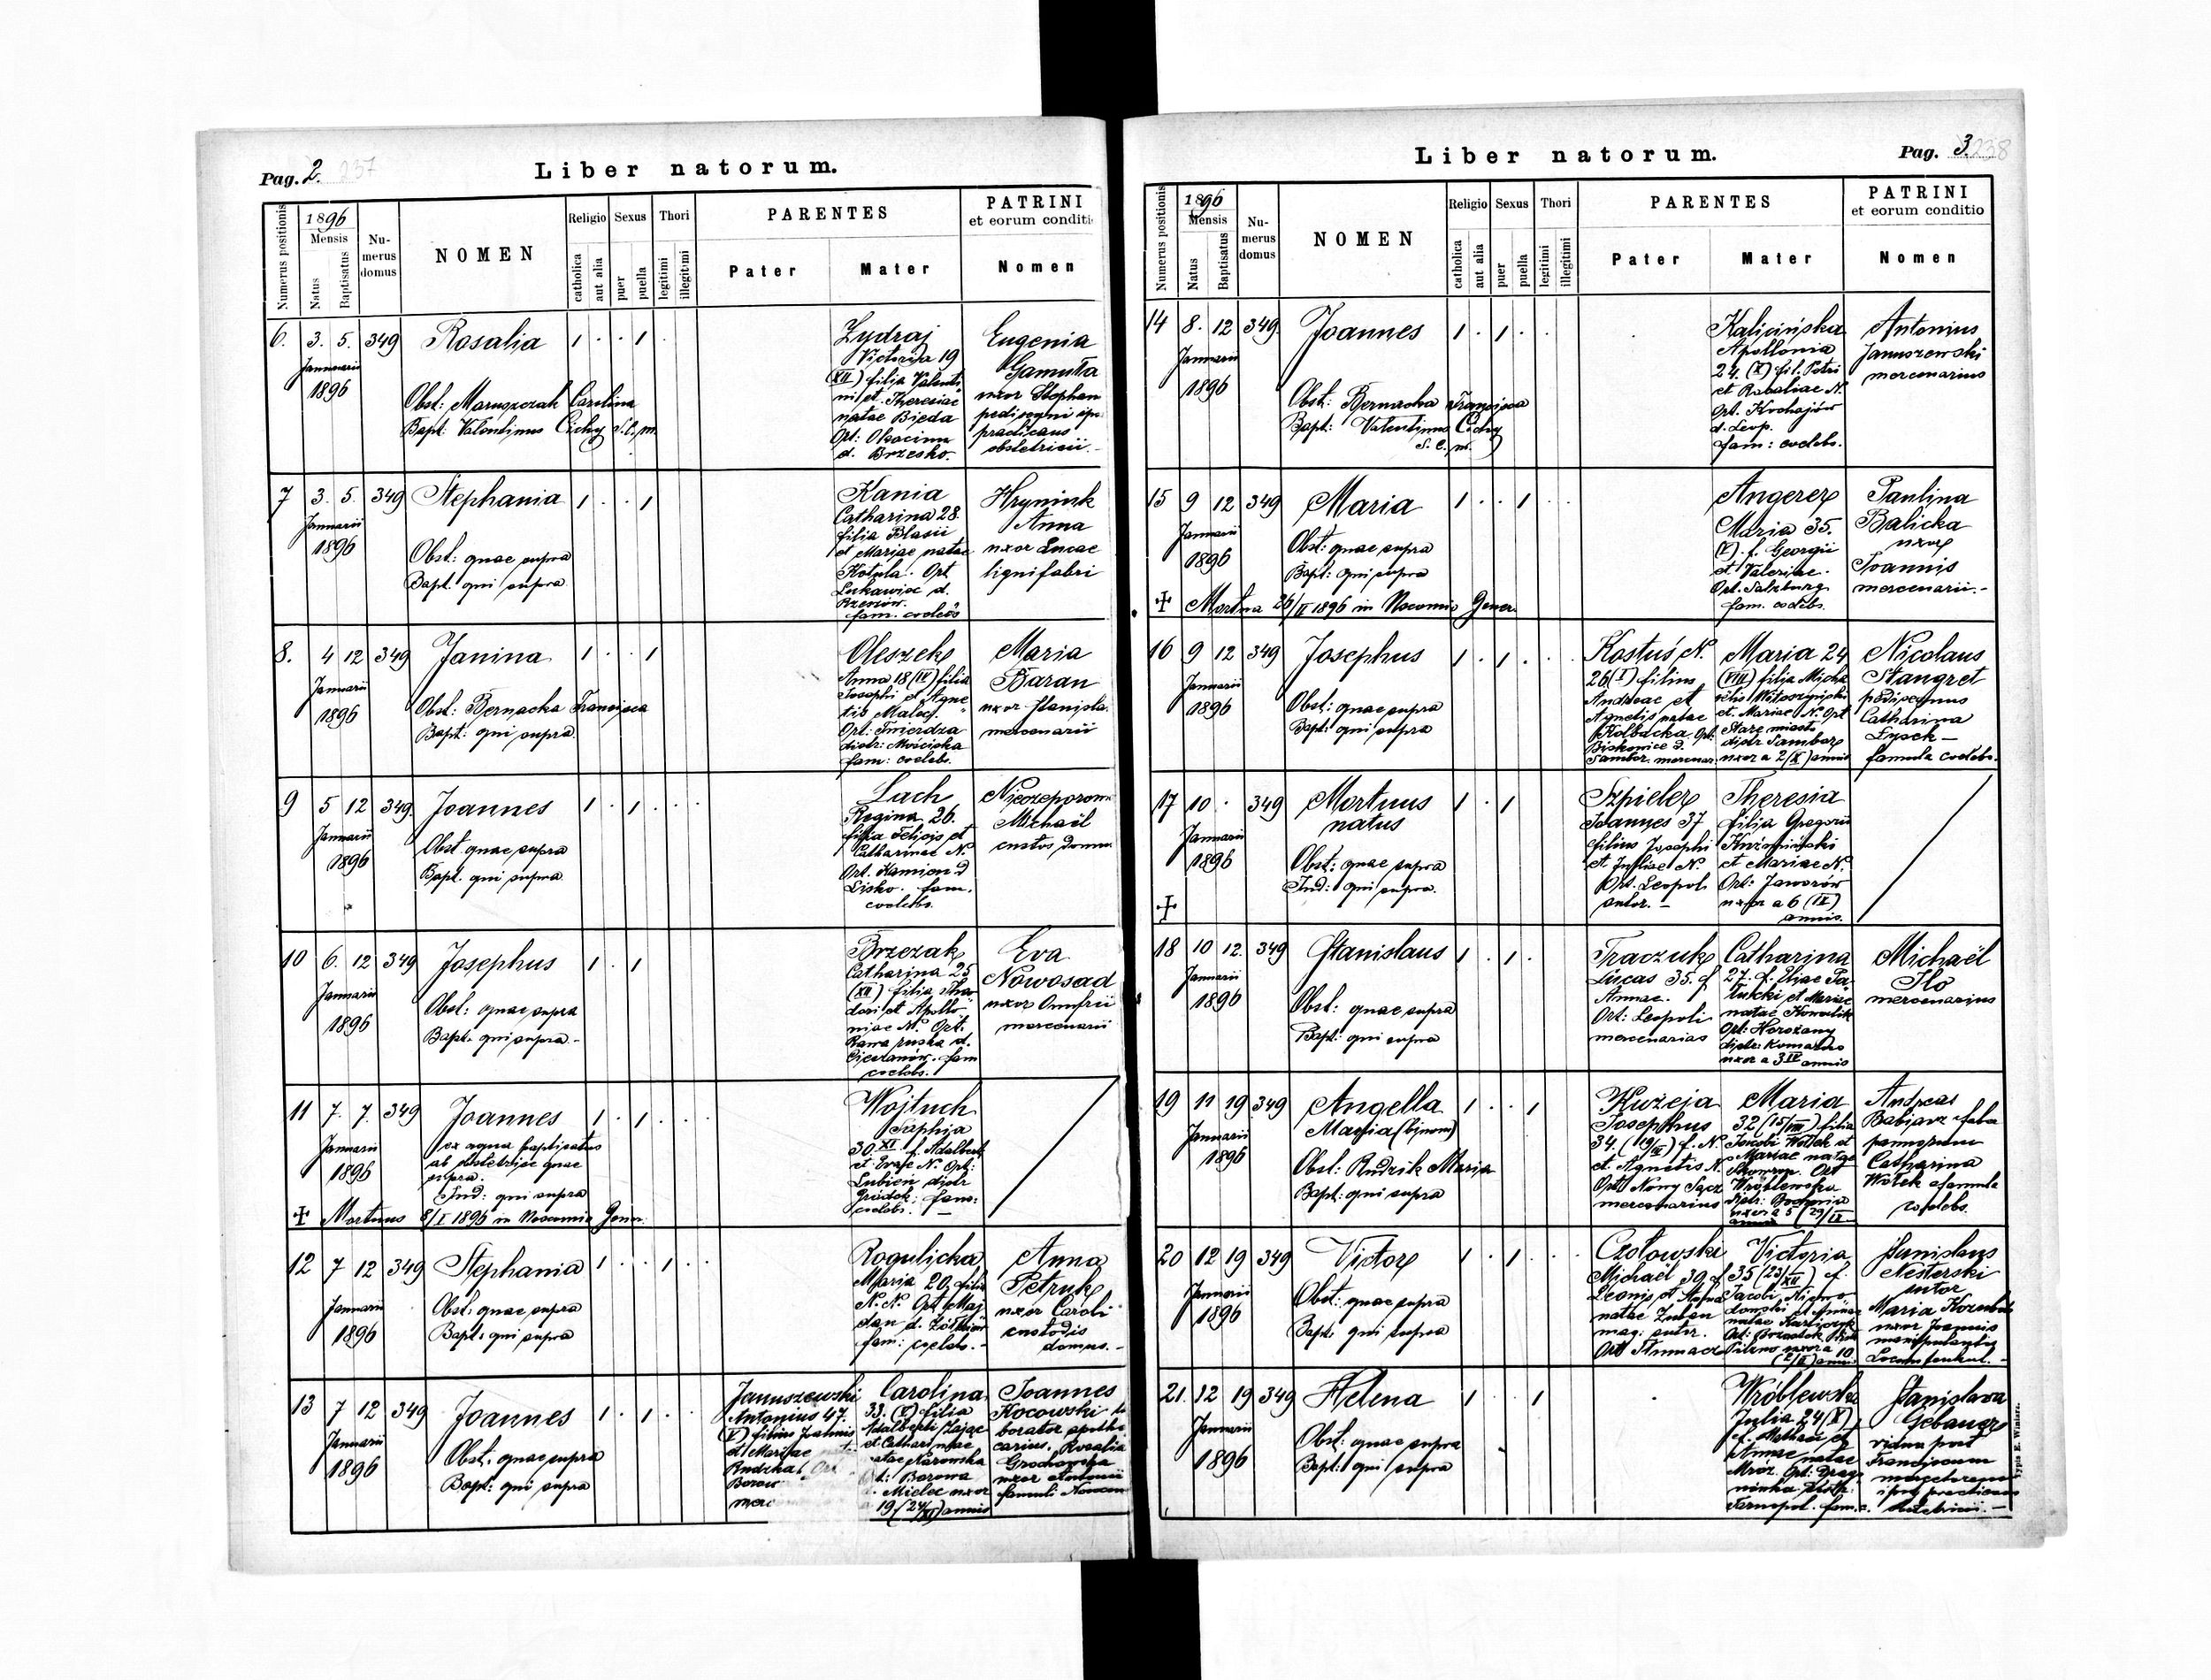 Pag. 2. 237
Liber natorum.
Numerus positionis
1896
Mensis
Natus
Baptisatus
Nu-
merus
domus
NOMEN
Religio
catholica
aut alia
Sexus
puer
puella
Thori
legitimi
illegitimi
PARENTES
Pater
Mater
PATRINI
et eorum conditi
Nomen
6. 3. 5. 349 Rosalia 1 . . 1 .
Januarii
1896
Obst: Maruszczak Carolina
Bapt: Valentinus Cichy S. C. m.
Zydraj
Victoria 19
(XII) filia Valenti
ni et Theresiae
natae Bieda
Ort: Okocim
d. Brzesko.
Eugenia
Gamuta
uxor Stephan
pedisequi
practicans
obstetricii.
7 3. 5. 349 Stephania 1 . . 1
Januarii
1896
Obst: quae supra
Bapt. qui supra
Kania
Catharina 28
filia Blasii
et Mariae natae
Kotula. Ort
Lukawiec d.
Rzeszów.
fam. coelebs
Hryniuk
Anna
uxor Lucae
lignifabri
8. 4 12 349 Janina 1 . . 1
Januarii
1896
Obst: Bernacka Francisca
Bapt: qui supra
Oleszek
Anna 18 (IV) filia
Josephi et Agne
tis
Ort: Twierdza
distr: Mościska
fam: coelebs.
Maria
Baran
uxor Stanisla.
mercenarii
9 5 12 349. Joannes 1 . 1 . . .
Januarii
1896
Obst quae supra
Bapt. qui supra
Lach
Regina 26.
filia Felicis et
Catharinae N.
Ort. Kamion d
Lisko. fam.
coelebs.
Michaël
custos domus
10 6. 12 349 Josephus 1 . 1
Januarii
1896
Obst: quae supra
Bapt. qui supra
Brzezak
Catharina 25
(XII) filia Theo
dori et Apollo
niae N. Ort.
Rawa ruska d.
Cieszanów. fam
coelebs.
Eva
Nowosad
uxor Onufrii
mercenarii
11 7. 7. 349 Joannes 1 . 1 . . .
Januarii
1896
ex aqua baptisatus
ab obstetrice quae
supra.
Ind: qui supra
✝ Mortuus 8/I 1896 in Nosocomio Gener.
Wojtuch
Sophia
30 XI f. Adalberti
et Evae N. Ort:
Lubien distr
Gródek: fam:
coelebs.
12 7 12 349 Stephania 1 . . 1 . .
Januarii
1896
Obst: quae supra
Bapt: qui supra
Rogulicka
Maria 20, filia
N. N. Ort Maj
dan d. Żółkiew
fam: coelebs.
Anna
Petruk
uxor Caroli
custodis
domus.
13 7 12 349 Joannes 1 . 1 . .
Januarii
1896
Obst. quae supra
Bapt: qui supra
Januszewski
Antonius 47.
(V) filius Joannis
et Mariae
Rudzka Ort
Borow
merc
Carolina
33. (V) filia
Adalberti Zając
et Catharinae
natae Karowska
Ort: Borowa
d. Mielec uxor
a 19 (24/XI) annis
Joannes
Kocowski la
borator apothe
carius, Rosalia
Grochowska
uxor Antonii
famuli
Pag. 3. 238
Liber natorum.
Numerus positionis
1896
Mensis
Natus
Baptisatus
Nu-
merus
domus
NOMEN
Religio
catholica
aut alia
Sexus
puer
puella
Thori
legitimi
illegitimi
PARENTES
Pater
Mater
PATRINI
et eorum conditio
Nomen
14 8. 12 349. Joannes 1 . 1 . .
Januarii
1896
Obst: Bernacka Francisca
Bapt: Valentinus Cichy
S. C. m.
Kalicińska
Apollonia
24. (X) fil. Petri
et Rosaliae N.
Ort. Krohajów
d. Leop.
fam: coelebs.
Antonius
Januszewski
mercenarius
15 9 12 349 Maria 1 . . 1 . .
Januarii
1896
Obst: quae supra
Bapt: qui supra
✝ Mortua 26/II 1896 in Nosocomio Gener.
Angerer
Maria 35.
(V). f. Georgii
et Valeriae.
Ort. Salzburg
fam. coelebs.
Paulina
Balicka
uxor
Joannis
mercenarii.-
16 9 12 349 Josephus 1 . 1 . . .
Januarii
1896
Obst: quae supra
Bapt: qui supra
Kostuś N.
26 (I) filius
Andreae et
Agnetis natae
Kolbacka. Ort:
Biskowice d.
Sambor. mercenar.
Maria 24
(VIII) filia Micha
ëlis Witoszyński
et Mariae N. Ort
Stare miasto
distr Sambor
uxor a 2/(X) annis
Nicolaus
Stangret
pedisequus
Catharina
Lysek —
famula coelebs.
17 10 . 349 Mortuus 1 . 1
natus
Januarii
1896
Obst: quae supra
Ind: qui supra.
✝
Szpieler
Joannes 37
filius Josephi
et Juliae N.
Ort. Leopol.
sutor. —
Theresia
filia Gregorii
et Mariae N.
Ort: Jaworów
uxor a 6 (IX)
annis.
18 10 12. 349 Stanislaus 1 . 1 .
Januarii
1896
Obst: quae supra
Bapt: qui supra
Traczuk
Lucas 35. f
Annae.
Ort: Leopoli
mercenarias
Catharina
27. f. Eliae Pa
lucki et Mariae
natae Kowalik
Ort: Horożany
distr: Komarno
uxor a 3 IV annis
Michaël
Ilo
mercenarius
19 11 19 349 Angella 1 . . 1
Maria (binom)
Januarii
1896
Obst: Rudzik Maria
Bapt: qui supra
Kuzeja
Josephus
34 (19/III) f. N.
et Agnetis N.
Ort Nowy Sącz
mercenarius
Maria
32 (15/VIII) filia
Jacobi Wołek et
Mariae natae
Skowron. Ort
Wróblewska
distr: Bochnia
uxor a 5 (29/IX
annis
Andreas
Babiarz faba
pannorum
Catharina
Wołek famula
coelebs.
20 12 19 349 Victor 1 . 1 . . .
Januarii
1896
Obst: quae supra
Bapt: qui supra
Czołowski
Michaël 39 f
Leonis et Anna
natae Zuban
mag: sutor.
Ort Tłumacz
Victoria
35 (23/XII) f.
Jacobi Niewo
dowski et Annae
natae
Ort: distr
Pilzno uxor a 10
(2/II) annis
Stanislaus
Nesterski
sutor
Maria
uxor Joannis
manipulantis
Locumtenent. -
21. 12 19 349 Helena 1 . . 1
Januarii
1896
Obst: quae supra
Bapt: qui supra
Wróblewska
Julia 24 (V)
f. Mathaei et
Annae natae
Mróz. Ort:
Tarnopol. fam. c.
Stanislava
Gebauer
vidua post
Franciscum
practicans
obstetricii. —
Typis E. Winiarz.